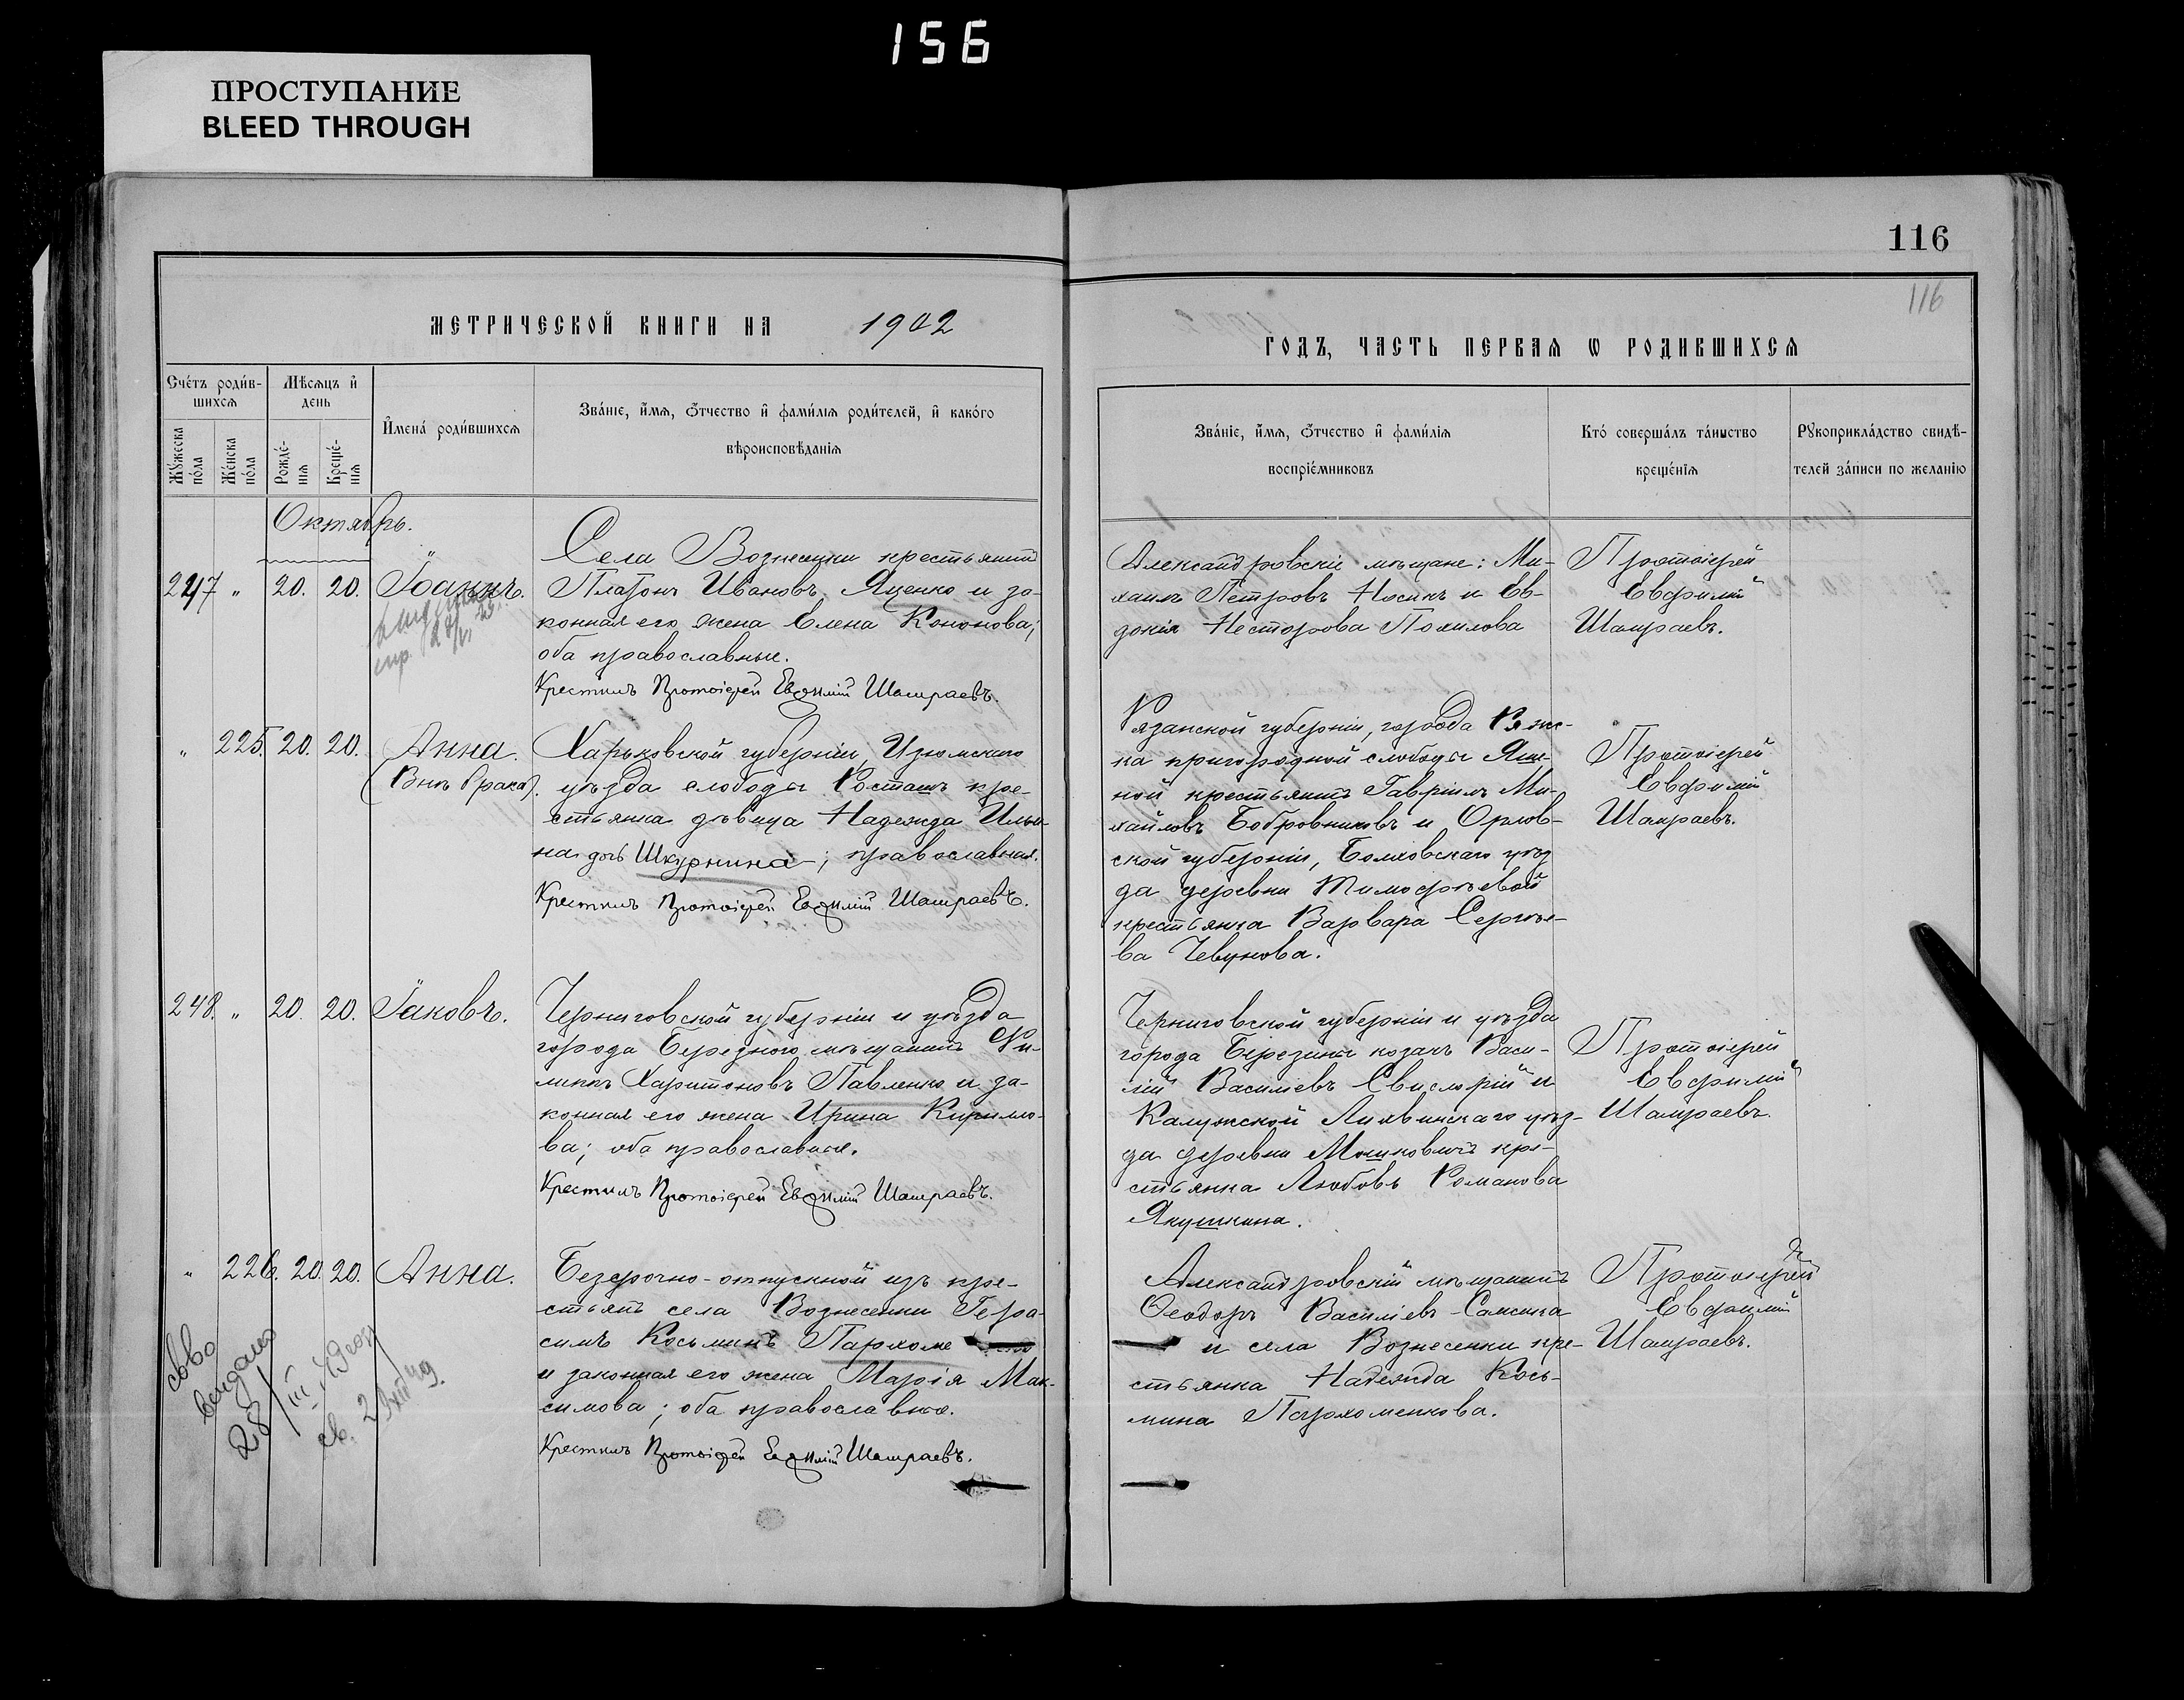 156
ПРОСТУПАНИЕ
BLEED THROUGH
116
116
МЕТРИЧЕСКОЙ КНИГИ НА 1902
ГОДЪ, ЧАСТЬ ПЕРВАЯ Ѡ РОДИВШИХСЯ
Счетъ родившихся
Мужеска пола
Женска пола
Мѣсяцъ и день
Рожденія
Крещенія
Имена родившихся
Званіе, имя, отчество и фамилія родителей, и какого
вѣроисповѣданія
Званіе, имя, отчество и фамилія
воспріемниковъ
Кто совершалъ таинство
крещенія
Рукоприкладство свидѣ-
телей записи по желанію
Октябрь.
247 " 20. 20. Іоаннъ.
Села Вознесенки крестьянинъ
Платонъ Ивановъ Яценко и за-
конная его жена Елена Кононова;
оба православные.
Крестилъ Протоіерей Евѳимій Шамраевъ.
Александровскіе мѣщане: Ми-
хаилъ Петровъ Носикъ и Ев-
докія Несторова Похилова
Протоіерей
Евфимій
Шамраевъ.
" 225. 20. 20. Анна.
(Внѣ брака).
Харьковской губерніи, Изюмскаго
уѣзда слободы Росташъ кре-
стьянка дѣвица Надежда Ильи-
на дочь Шкурнина; православная.
Крестилъ Протоіерей Евѳимій Шамраевъ.
Рязанской губерніи, города Ряжс-
ка пригородной слободы Ям-
ной крестьянинъ Гавріилъ Ми-
хайловъ Бобровниковъ и Орлов-
ской губерніи, Болховскаго уѣз
да деревни Тимофѣевой
крестьянка Варвара Сергѣе-
ва Чевунова.
Протоіерей
Евфимій
Шамраевъ.
248. " 20. 20. Іаковъ.
Черниговской губерніи и уѣзда
города Березного мѣщанинъ Фи-
липпъ Харитоновъ Павленко и за-
конная его жена Ирина Кирилло-
ва; оба православные.
Крестилъ Протоіерей Евѳимій Шамраевъ.
Черниговской губерніи и уѣзда
города Березинъ козакъ Васи-
лій Василіевъ и
Калужской Лихвинскаго уѣз-
да деревни кре-
стьянка Любовь Романова
Якушкина.
Протоіерей
Евфимій
Шамраевъ.
" 226. 20. 20. Анна.
Безсрочно-отпускной изъ кре-
стьянъ села Вознесенки Гера-
симъ Косьминъ Пархоме
и законная его жена Марія Мак-
симова; оба православные.
Крестилъ Протоіерей Евѳимій Шамраевъ.
Александровскій мѣщанинъ
Ѳеодоръ Василіевъ Самсика
и села Вознесенки кре-
стьянка Надежда Кось-
мина Пархоменкова.
Протоіерей
Евфимій
Шамраевъ.
выдано
28/III